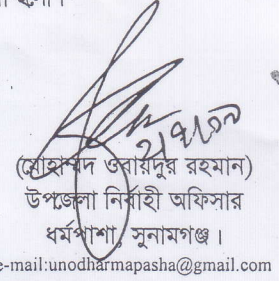 (মোহাম্মদ ওবায়দুর রহমান)
উপজেলা নির্বাহী অফিসার
ধর্মপাশা, সুনামগঞ্জ।
e-mail:unodharmapasha@gmail.com